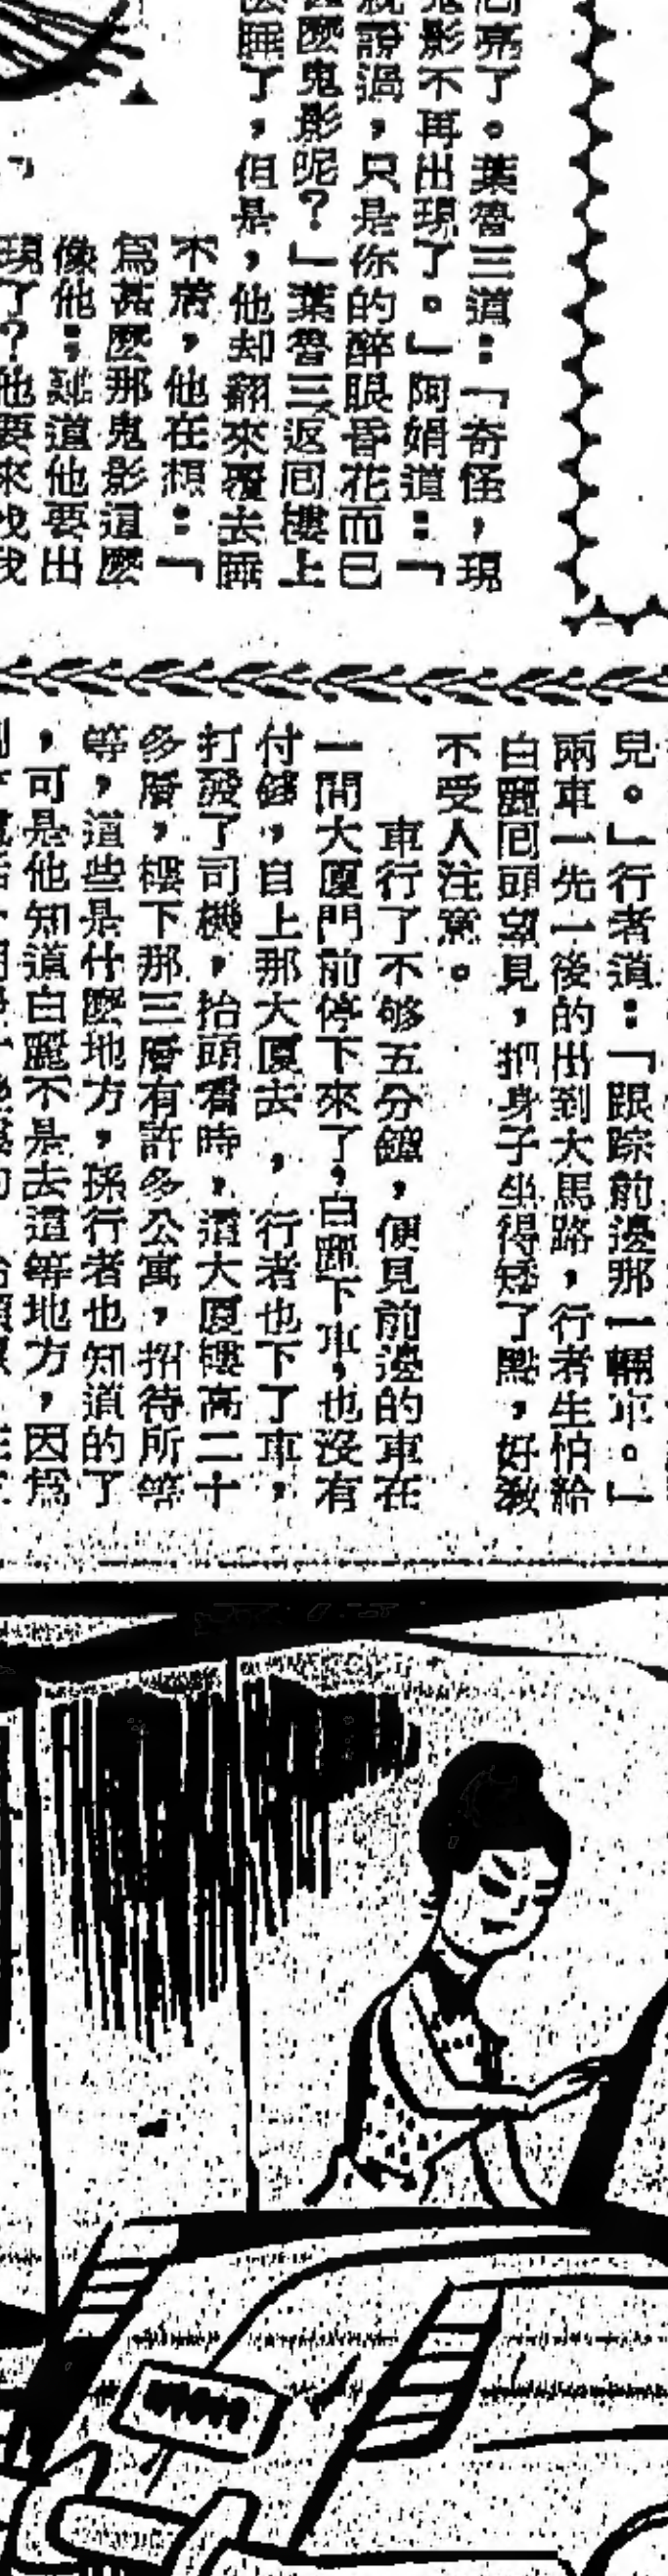 亮了。葉魯三道：「奇怪，現
鬼影不再出現了。」阿娟道：「
就證過，只是你的醉眼昏花而已
甚麼鬼影呢？」葉魯三返回樓上
睡了，但是，他却翻來覆去睡
不着，他在想：「
爲甚麼那鬼影這麼
像他；難道他要出
現了？他要來找我
兒。」行者道：「跟踪前邊那一輛車。」
兩車一先一後的出到大馬路，行者生怕給
白麗回頭望見，把身子坐得矮了點，好教
不受人注意。
車行了不够五分鐘，便見前邊的車在
一間大廈門前停下來了，白麗下車，也沒有
付錢，自上那大廈去，，行者也下了車，
打發了司機，抬頭看時，這大廈樓高二十
多層，樓下那三層有許多公寓，招待所等
等，這些是什麼地方，孫行者也知道的了
，可是他知道白麗不是去這等地方，因爲